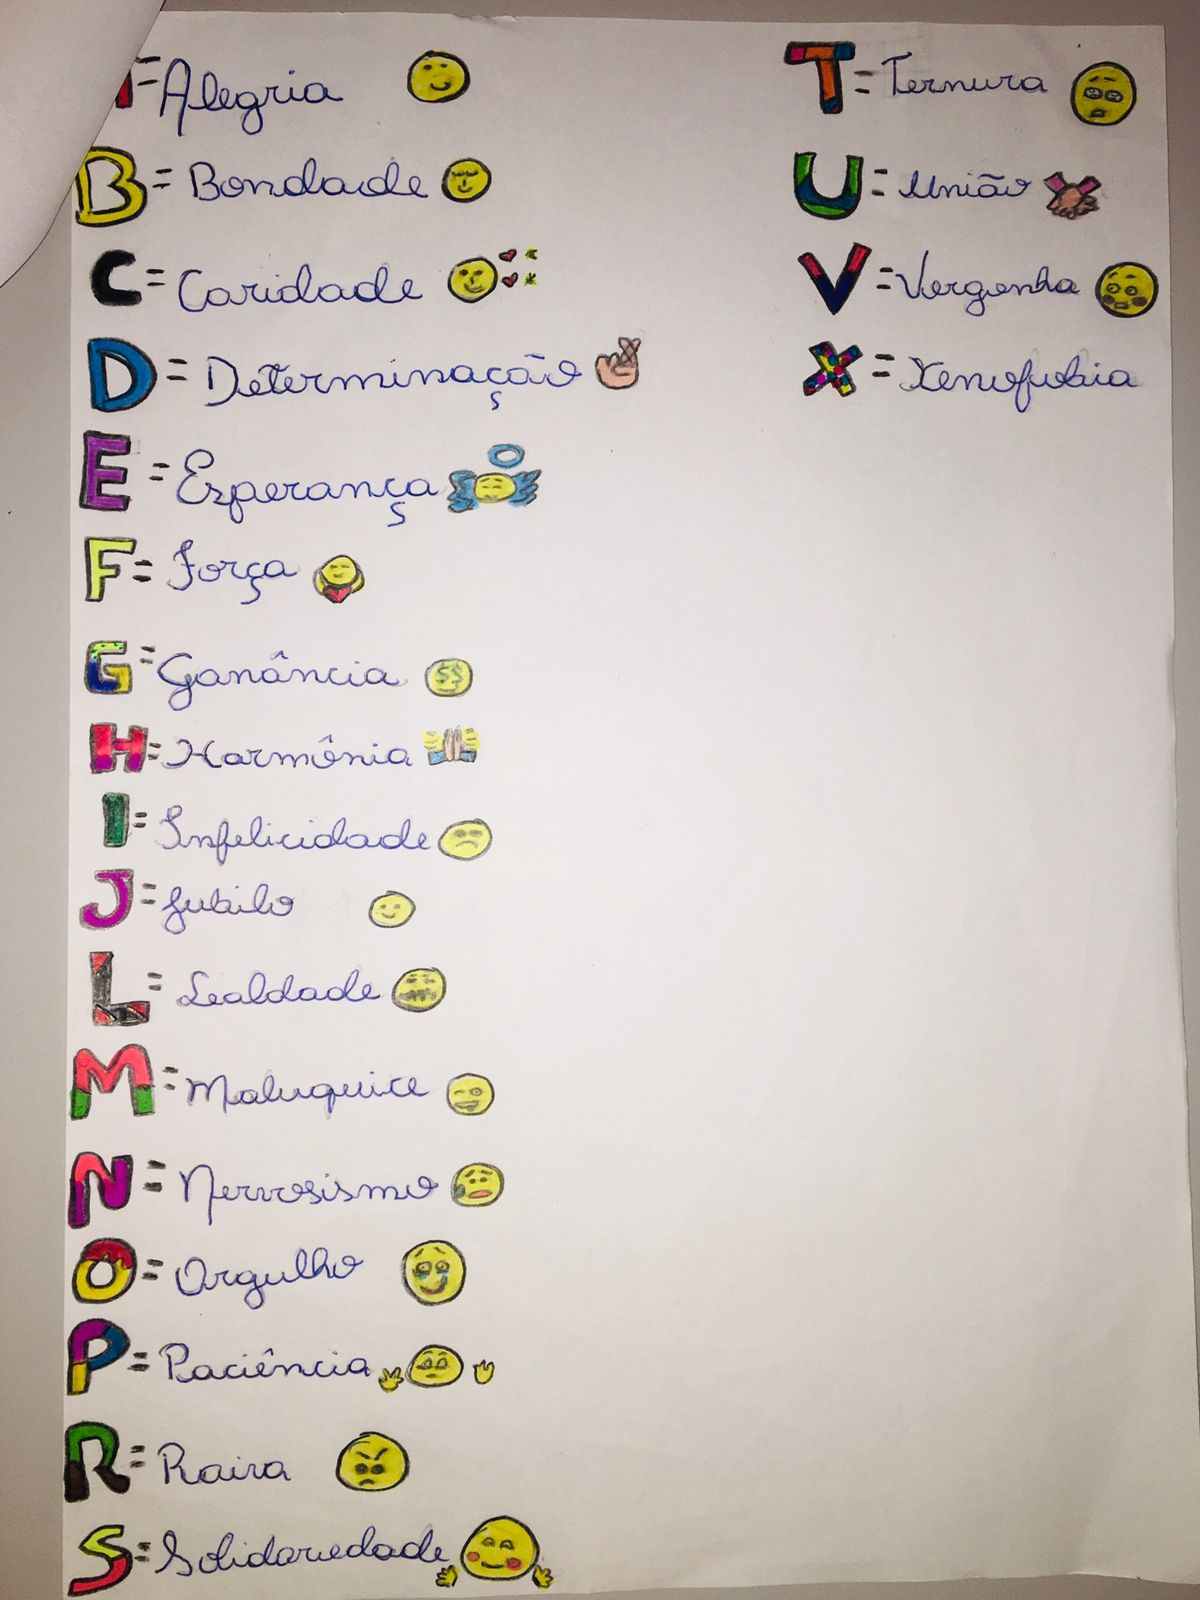 = Alegria
B = Bondade
C = Caridade
D = Determinação
E = Esperança
F = Força
G = Ganância
H = Harmônia
I = Infelicidade
J = Jubilo
L = Lealdade
M = Maluquice
N = Nervosismo
O = Orgulho
P = Paciência
R = Raiva
S = Solidariedade
T = Ternura
U = União
V = Vergonha
X = Xenofobia